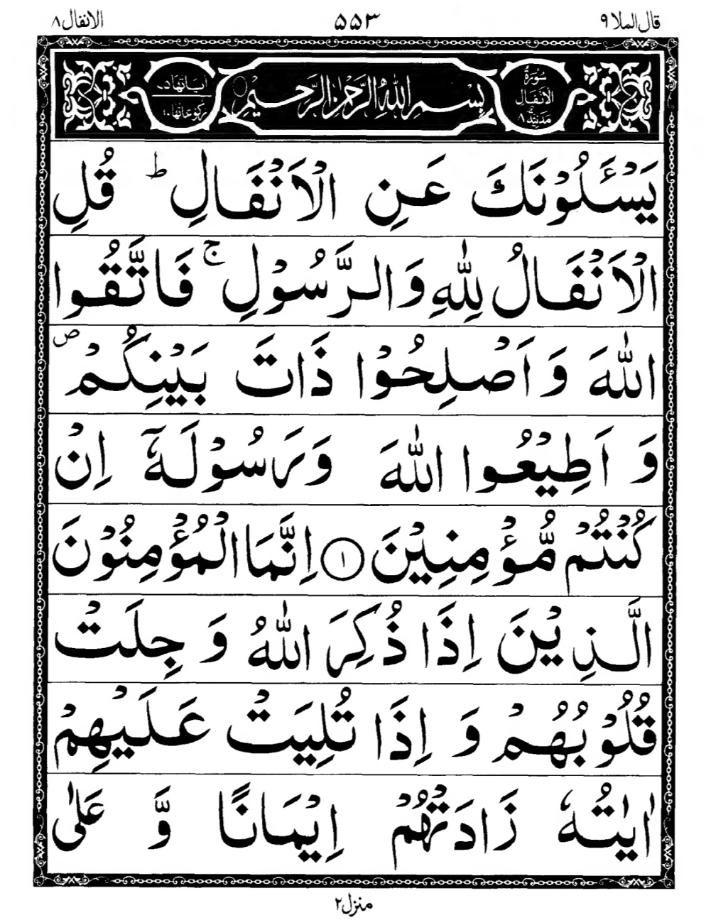 قال الملا ٩
٥٥٣
الانفال ٨
سُوْرَةُ الْاَنْفَالِ مَدَنِيَّةٌ ٨
بِسْمِ اللّٰهِ الرَّحْمٰنِ الرَّحِيْمِ
اٰيَاتُهَا ٧٥ رُكُوْعَاتُهَا ١٠
يَسْـَٔلُوْنَكَ عَنِ الْاَنْفَالِ ؕ قُلِ
الْاَنْفَالُ لِلّٰهِ وَالرَّسُوْلِ ۚ فَاتَّقُوا
اللّٰهَ وَ اَصْلِحُوْا ذَاتَ بَيْنِكُمْ ۪
وَ اَطِيْعُوا اللّٰهَ وَرَسُوْلَهٗۤ اِنْ
كُنْتُمْ مُّؤْمِنِيْنَ ۝١ اِنَّمَا الْمُؤْمِنُوْنَ
الَّذِيْنَ اِذَا ذُكِرَ اللّٰهُ وَ جِلَتْ
قُلُوْبُهُمْ وَ اِذَا تُلِيَتْ عَلَيْهِمْ
اٰيٰتُهٗ زَادَتْهُمْ اِيْمَانًا وَّ عَلٰى
منزل ٢